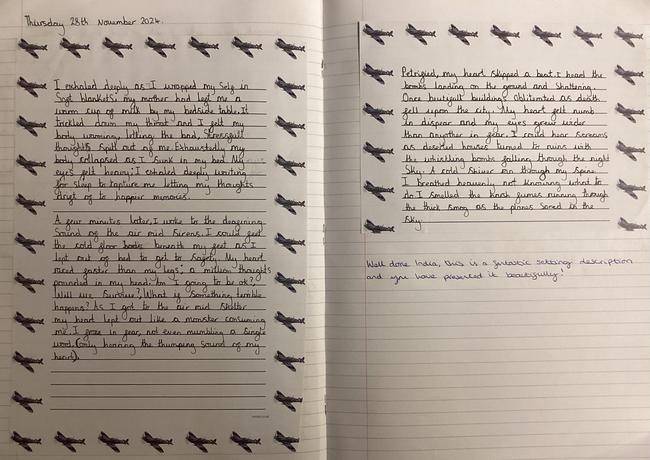 Thursday 28th November 2024.
I exhaled deeply as I wrapped my self in
soft blankets; my mother had left me a
warm cup of milk by my bedside table. It
trickled down my throat and I felt my
body warming, letting the bad, stressfull
thoughts spill out of me. Exhaustedly my
body collapsed as I sunk in my bed. My
eyes felt heavy; I exhaled deeply waiting
for sleep to capture me letting my thoughts
drift of to happier memories.
A few minutes later, I woke to the deafening
sound of the air raid sirens. I could feel
the cold floor beneath my feet as I
lept out of bed to get to safety. My heart
raced faster than my legs; a million thoughts
pounded in my head: Am I going to be ok?,
Will we survive? What if something terrible
happens? As I got to the air raid shelter
my heart lept out like a monster consuming
me. I froze in fear, not even mumbling a single
word. (only hearing the thumping sound of my
heart).
Petrified, my heart skipped a beat. I heard the
bombs landing on the ground and shattering.
Once beutifull buildings obliterated as death
fell upon the city. My heart felt numb
in dispear and my eyes grew wider
than anyother in fear. I could hear screams
as deserted houses turned to ruins with
the whistling bombs falling through the night
sky. A cold shiver ran through my spine.
I breathed heavenly not knowing what to
do. I smelled the fumes running through
the thick smog as the planes sored in the
sky.
Well done India, this is a fantastic setting description
and you have presented it beautifully!